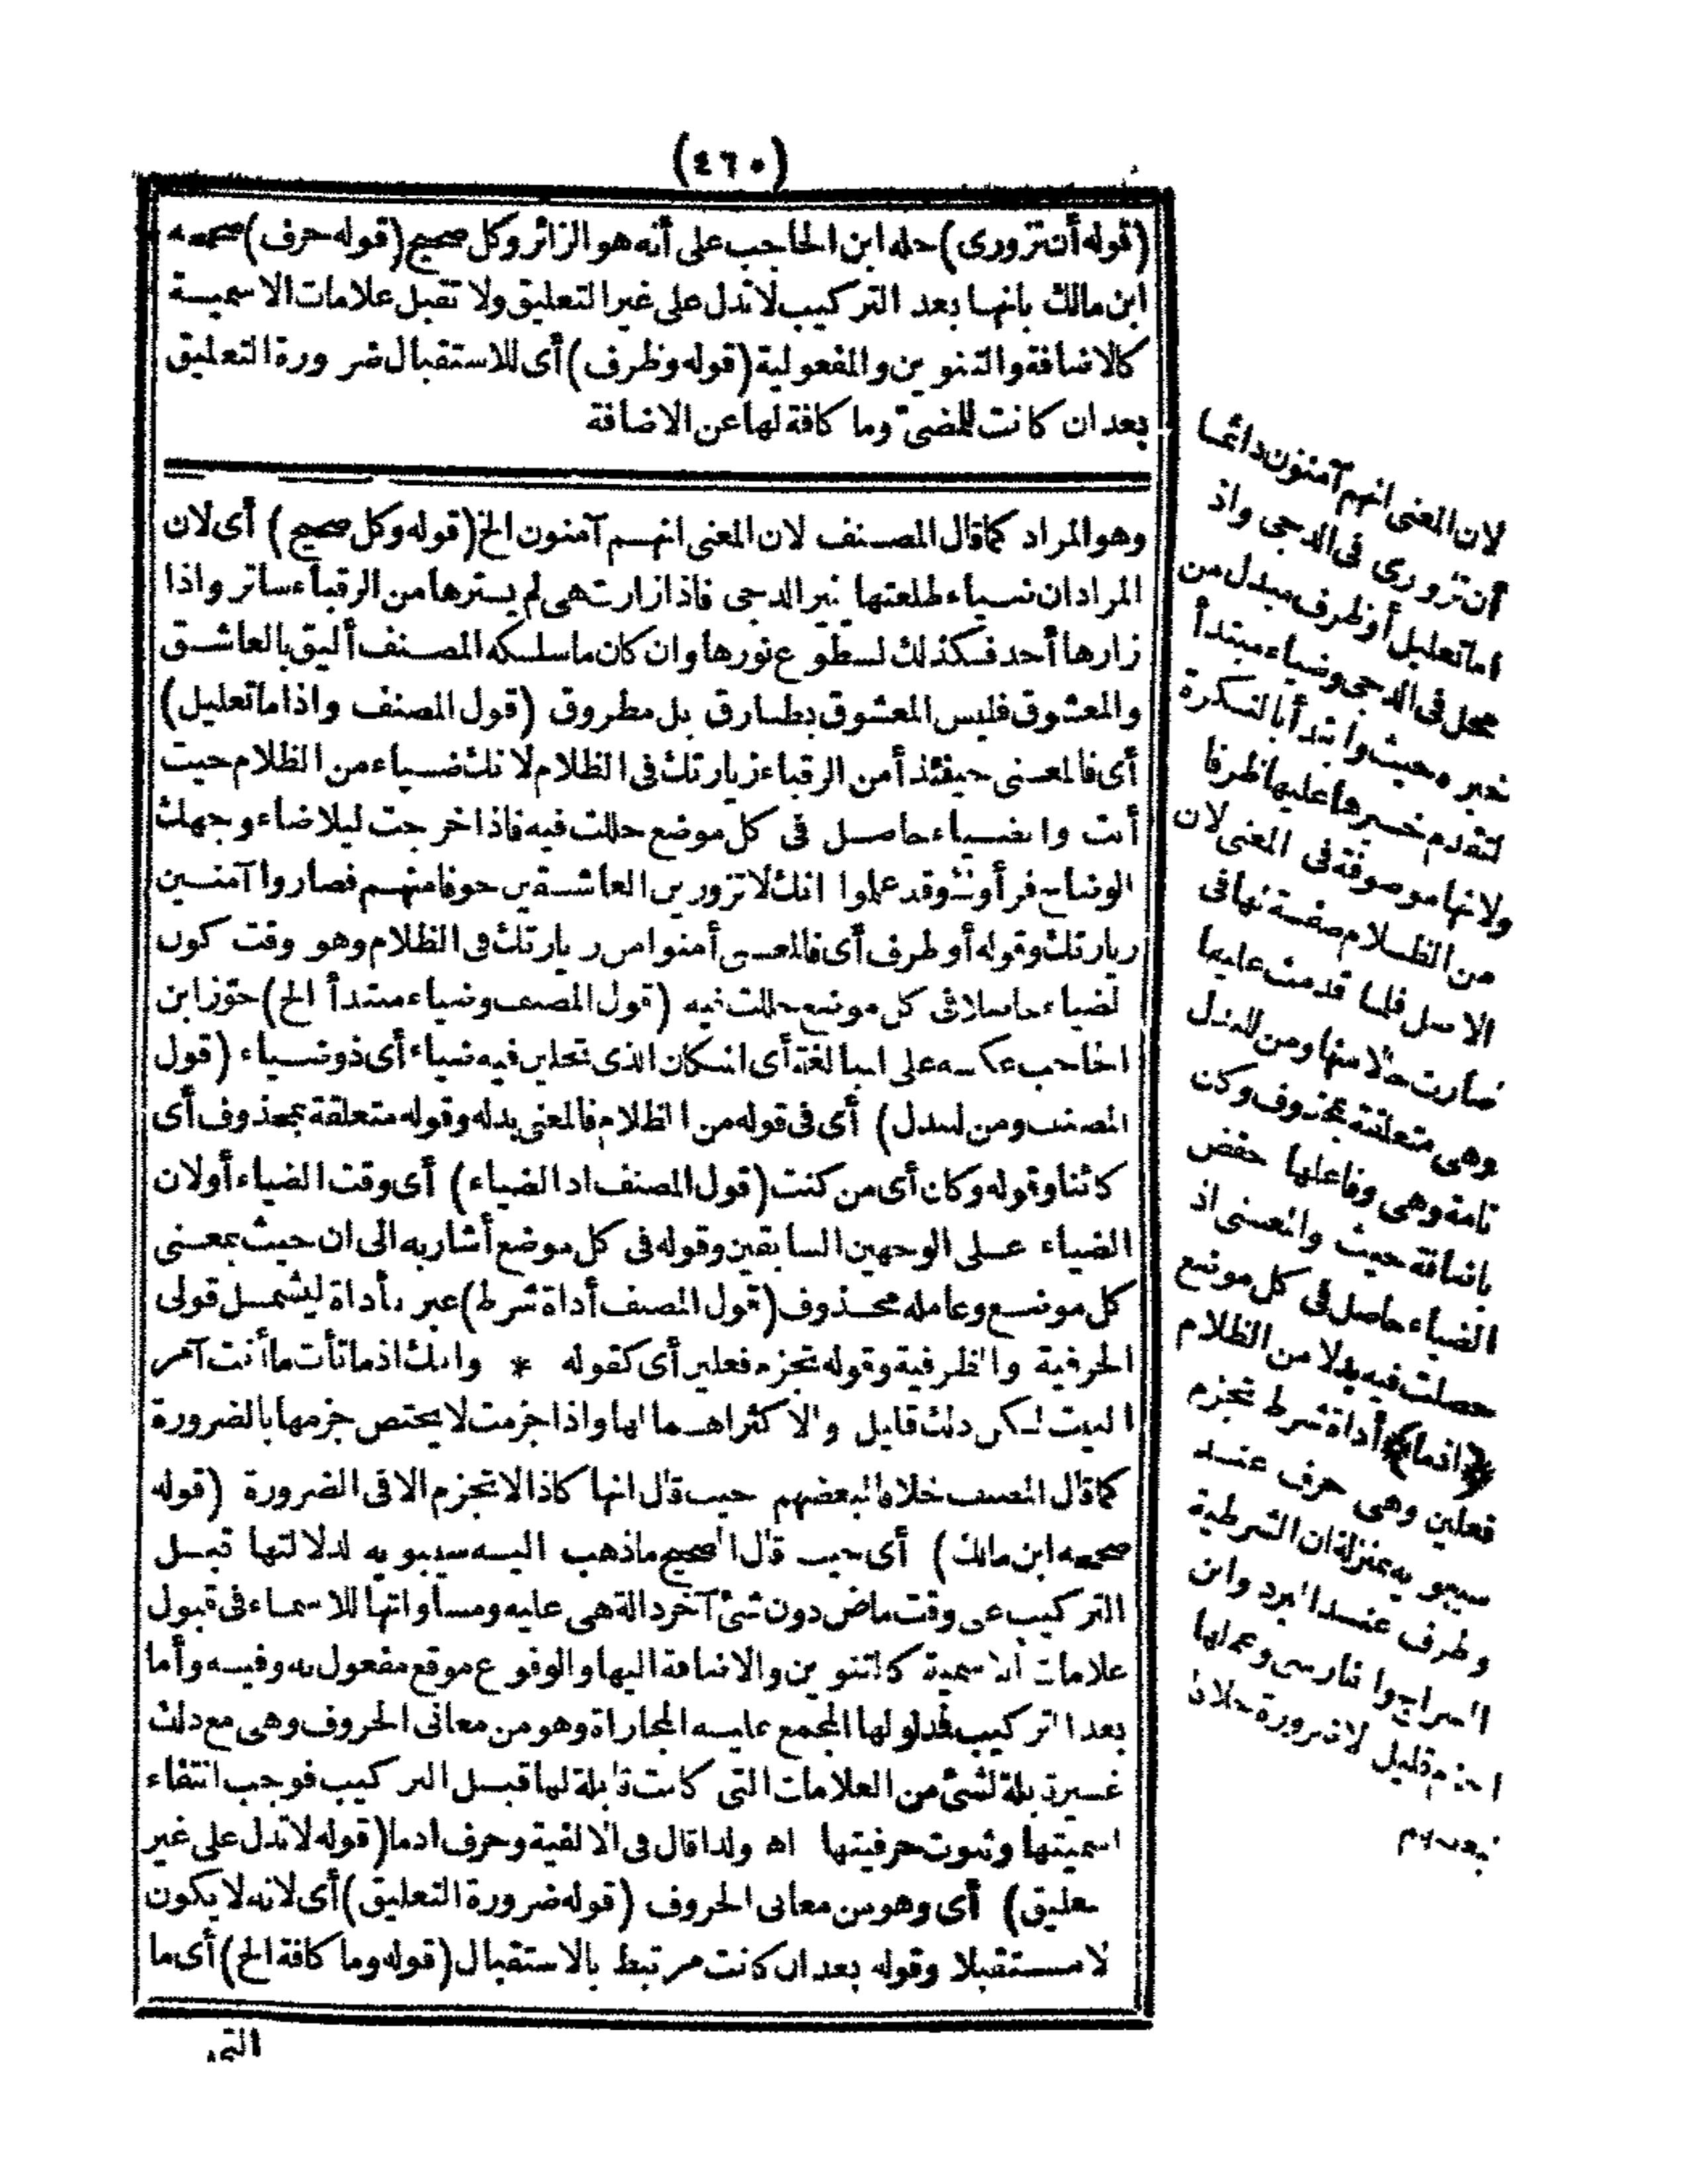 (٤٦٠)
(قوله أن تزورى) حمله ابن الحاجب على أنه هو الزائر وكل صحيح (قوله حرف) صححه
ابن مالك بانها بعد التركيب لا تدل على غير التعليق ولا تقبل علامات الاسمية
كالاضافة والتنوين والمفعولية (قوله وظرف) أى للاستقبال ضرورة التعليق
بعد ان كانت للمضىّ وما كافة لها عن الاضافة
وهو المراد كما قال المصنف لان المعنى انهم آمنون الخ (قوله وكل صحيح) أى لان
المراد ان ضياء طلعتها نير الدجى فاذا زارت هى لم يسترها من الرقباء ساتر واذا
زارها أحد فكذلك لسطوع نورها وان كان ما سلكه المصنف أليق بالعاشق
والمعشوق فليس المعشوق بطارق بل مطروق (قول المصنف واذ اما تعليل)
أى فالمعنى حينئذ أمن الرقباء زيارتك فى الظلام لانك ضياء من الظلام حيت
أنت والضياء حاصل فى كل موضع حللت فيه فاذا خرجت ليلا ضاء وجهك
الوضاح فرأوك وقد علموا انك لا تزورين العاشقين خوفا منهم فصاروا آمنين
زيارتك وقوله أو ظرف أى فالمعنى أمنوا من زيارتك فى الظلام وهو وقت كون
لضياء حاصلا فى كل موضع حللت فيه (قول المصنف وضياء مبتدأ الخ) جوّز ابن
الحاجب عكسه على المبالغة أى المكان الذى تحلين فيه ضياء أى ذو ضياء (قول
المصنف ومن للبدل) أى فى قوله من الظلام فالمعنى بدله وقوله متعلقة بمحذوف أى
كائنا وقوله وكان أى من كنت (قول المصنف اذ الضياء) أى وقت الضياء أو لان
الضياء على الوجهين السابقين وقوله فى كل موضع أشار به الى ان حيث بمعنى
كل موضع وعامله محذوف (قول المصنف أداة شرط) عبر بأداة ليشمل قولى
الحرفية والظرفية وقوله تجزم فعلين أى كقوله * وانك اذما تأت ما أنت آمر
البيت لكن ذلك قليل والاكثر اهمالها واذا جزمت لا يختص جزمها بالضرورة
كما قال المصنف خلافا لبعضهم حيث قال انها كاذا لا تجزم الا فى الضرورة (قوله
صححه ابن مالك) أى حيث قال الصحيح ما ذهب اليه سيبويه لدلالتها قبل
التركيب على وقت ماض دون شئ آخر دالة هى عليه ومساواتها للاسماء فى قبول
علامات الاسمية كالتنوين والاضافة اليها والوقوع موقع مفعول به وفيه وأما
بعد التركيب فمدلولها المجمع عليه المجازاة وهو من معانى الحروف وهى مع ذلك
غير قابلة لشئ من العلامات التى كانت قابلة لها قبل التركيب فوجب انتفاء
اسميتها وثبوت حرفيتها اه ولذا قال فى الالفية وحرف اذما (قوله لا تدل على غير
تعليق) أى وهو من معانى الحروف (قوله ضرورة التعليق) أى لانه لا يكون
لا مستقبلا وقوله بعد ان كانت مرتبط بالاستقبال (قوله وما كافة الخ) أى ما
لان المعنى انهم آمنون دائما
أن تزورى فى الدجى واذ
اما تعليل أو ظرف مبدل من
محل فى الدجى وضياء مبتدأ
خبره حيث وابتدأ بالنكرة
لتقدم خبرها عليها ظرفا
ولانها موصوفة فى المعنى لان
من الظلام صفة لها فى
الاصل فلما قدمت عليها
صارت حالا منها ومن للبدل
وهى متعلقة بمحذوف وكان
تامة وهى وفاعلها خفض
باضافة حيث والمعنى اذ
الضياء حاصل فى كل موضع
حصلت فيه بدلا من الظلام
﴿اذما﴾ أداة شرط تجزم
فعلين وهى حرف عند
سيبويه بمنزلة ان الشرطية
وظرف عند المبرد وابن
السراج والفارسى وعملها
الجزم قليل لا ضرورة خلافا
لبعضهم